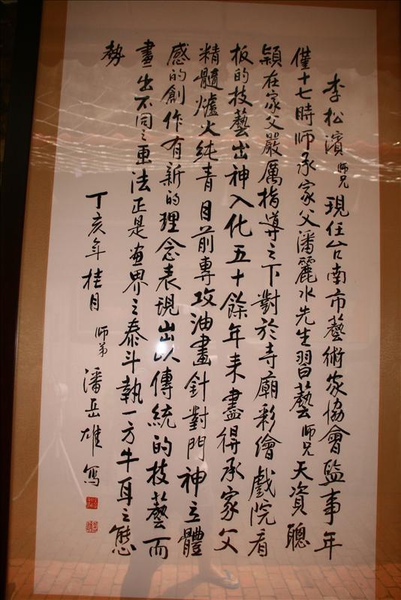 李松濱師兄現任台南市藝術家協會監事年
僅十七時師承家父潘麗水先生習藝師兄天資聰
穎在家父嚴厲指導之下對於寺廟彩繪戲院看
板的技藝出神入化五十餘年來盡得承家父
精髓爐火純青目前專攻油畫針對門神立體
感的創作有新的理念表現出以傳統的技藝而
畫出不同之画法正是画界之泰斗執一方牛耳之態
勢
丁亥年桂月師弟潘岳雄寫